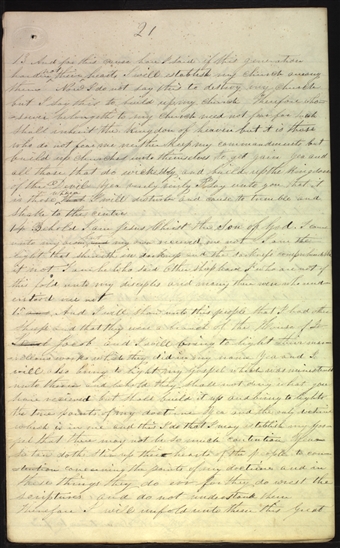 21
13 And for this cause have I said if this generation
harden not their hearts I will establish my church among
them Now I do not say this to destroy my church
but I say this to build up my church Therefore who
soever belongeth to my church need not fear for such
shall inherit the Kingdom of heaven but it is those
who do not fear me neither keep my commandments but
build up churches unto themselves to get gain Yea and
all those that do wickedly and build up the Kingdom
of the Devil Yea verily verily I say unto you that it
is those I will disturb and cause to tremble and
shake to the center
14 Behold I am Jesus Christ the Son of God I came
unto my own and my own received me not I am the
light that shineth in darkness and the darkness comprehendeth
it not I am he who said Other sheep have I who are not of
this fold unto my disciples and many there were who und
erstood me not
And I will shew unto this people that I had other
sheep and that they were a branch of the House of
Jacob and I will bring to light their marv
ellous works which they did in my name Yea and I
will also bring to light my Gospel which was ministered
unto them and behold they shall not deny that you
have received but shall build it up and bring to light
the true points of my doctrine Yea and the only doctrine
which is in me and this I do that I may establish my gos
pel that there may not be so much contention Yea
Satan doth stir up the hearts of the people to con
tention concerning the points of my doctrine and in
these things they do err for they do wrest the
scriptures and do not understand them
Therefore I will unfold unto them this great